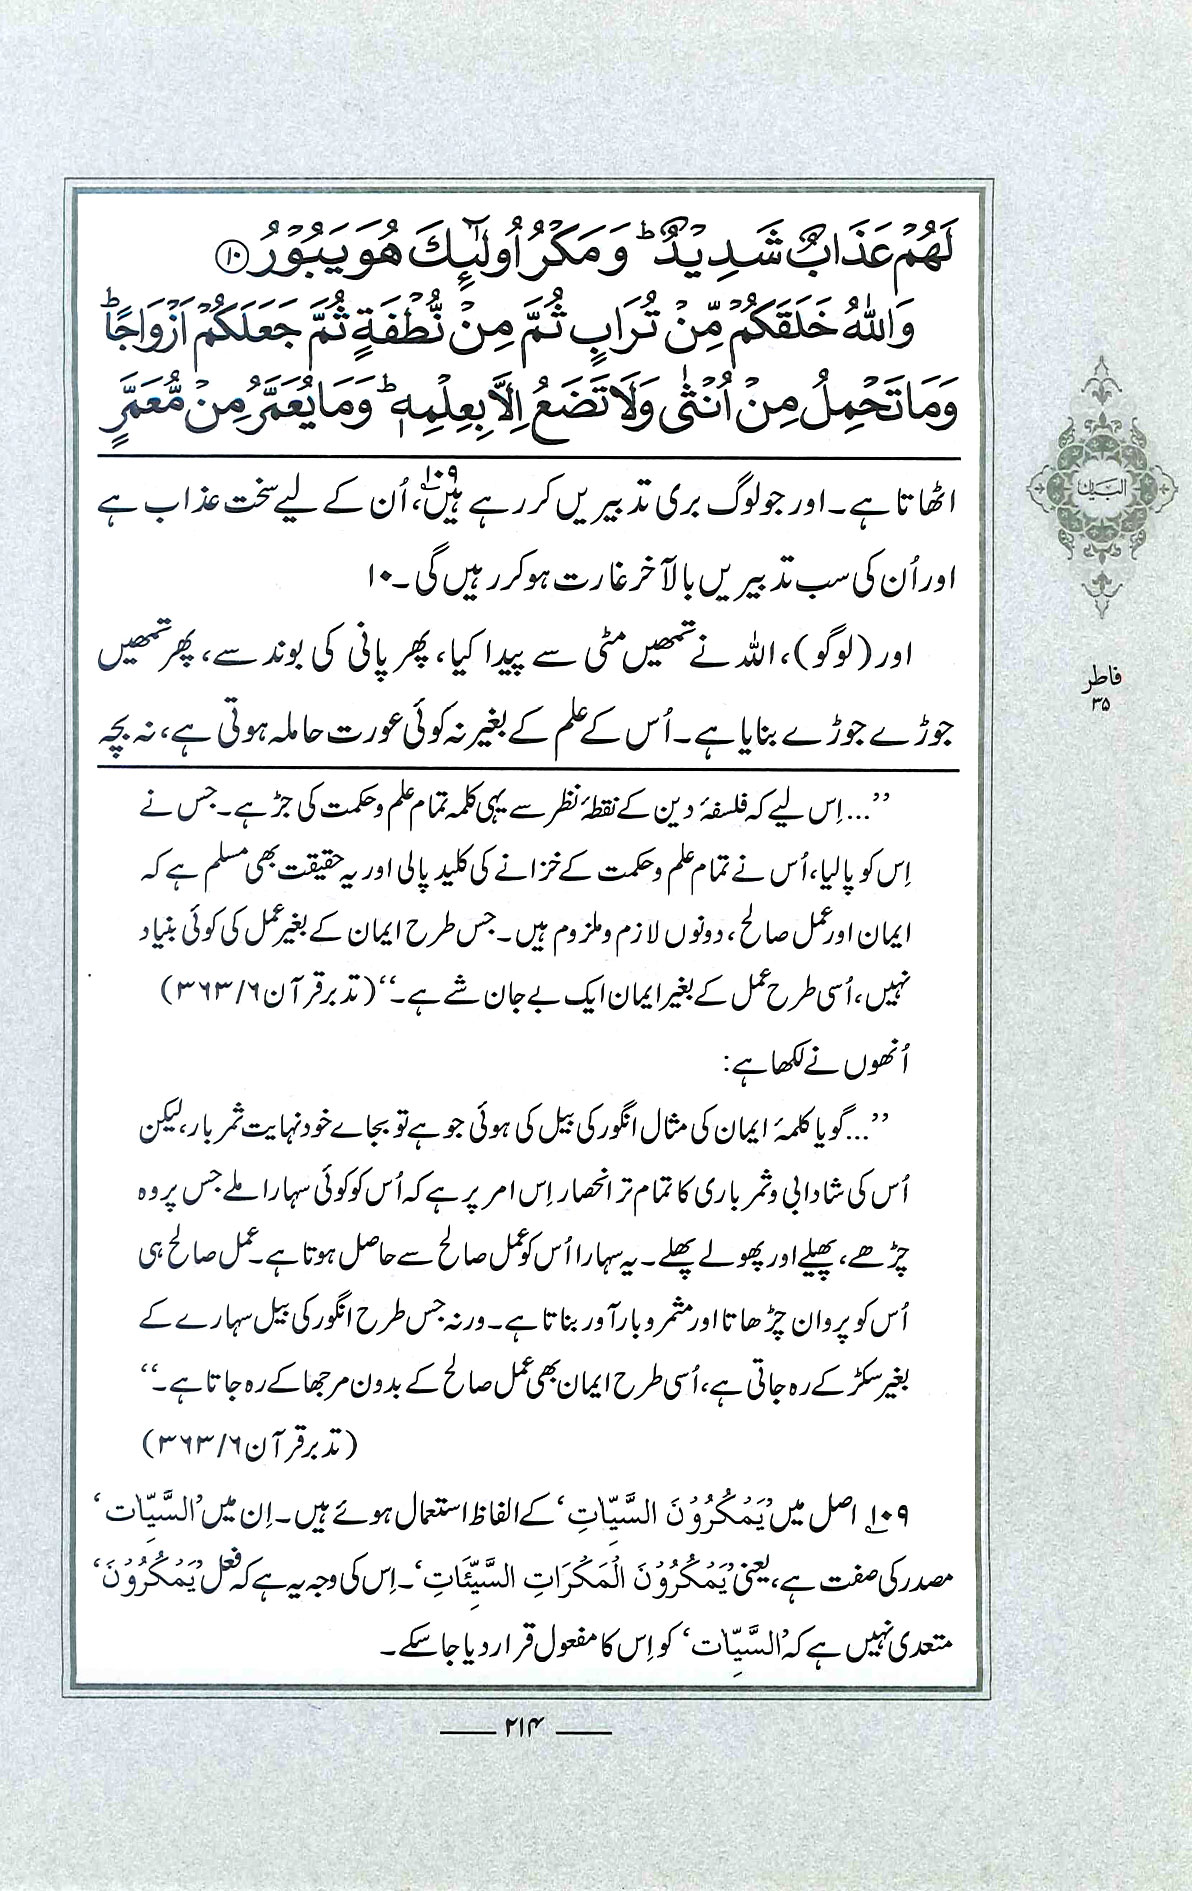 لَهُمْ عَذَابٌ شَدِيْدٌ ؕ وَمَكْرُ اُولٰٓئِكَ هُوَ يَبُوْرُ ﴿۱۰﴾
وَاللّٰهُ خَلَقَكُمْ مِّنْ تُرَابٍ ثُمَّ مِنْ نُّطْفَةٍ ثُمَّ جَعَلَكُمْ اَزْوَاجًا ؕ
وَمَا تَحْمِلُ مِنْ اُنْثٰى وَلَا تَضَعُ اِلَّا بِعِلْمِهٖ ؕ وَمَا يُعَمَّرُ مِنْ مُّعَمَّرٍ
اٹھاتا ہے۔ اور جو لوگ بری تدبیریں کر رہے ہیں۱۰۹، اُن کے لیے سخت عذاب ہے
اور اُن کی سب تدبیریں بالآخر غارت ہو کر رہیں گی۔ ۱۰
اور (لوگو)، اللہ نے تمھیں مٹی سے پیدا کیا، پھر پانی کی بوند سے، پھر تمھیں
جوڑے جوڑے بنایا ہے۔ اُس کے علم کے بغیر نہ کوئی عورت حاملہ ہوتی ہے، نہ بچہ
البیان
فاطر
۳۵
’’...اِس لیے کہ فلسفۂ دین کے نقطۂ نظر سے یہی کلمہ تمام علم و حکمت کی جڑ ہے۔ جس نے
اِس کو پا لیا، اُس نے تمام علم و حکمت کے خزانے کی کلید پالی اور یہ حقیقت بھی مسلم ہے کہ
ایمان اور عمل صالح، دونوں لازم و ملزوم ہیں۔ جس طرح ایمان کے بغیر عمل کی کوئی بنیاد
نہیں، اُسی طرح عمل کے بغیر ایمان ایک بے جان شے ہے۔‘‘ (تدبر قرآن ۶/ ۳۶۳)
اُنھوں نے لکھا ہے:
’’...گویا کلمۂ ایمان کی مثال انگور کی بیل کی ہوئی جو ہے تو بجاے خود نہایت ثمر بار، لیکن
اُس کی شادابی و ثمر باری کا تمام تر انحصار اِس امر پر ہے کہ اُس کو کوئی سہارا ملے جس پر وہ
چڑھے، پھیلے اور پھولے پھلے۔ یہ سہارا اُس کو عمل صالح سے حاصل ہوتا ہے۔ عمل صالح ہی
اُس کو پروان چڑھاتا اور مثمر و بار آور بناتا ہے۔ ورنہ جس طرح انگور کی بیل سہارے کے
بغیر سکڑ کے رہ جاتی ہے، اُسی طرح ایمان بھی عمل صالح کے بدون مرجھا کے رہ جاتا ہے۔‘‘
(تدبر قرآن ۶/ ۳۶۳)
۱۰۹ اصل میں ’یَمْكُرُوْنَ السَّيِّاٰتِ‘ کے الفاظ استعمال ہوئے ہیں۔ اِن میں ’السَّيِّاٰت‘
مصدر کی صفت ہے، یعنی ’یَمْكُرُوْنَ الْمَكَرَاتِ السَّيِّئَاتِ‘۔ اِس کی وجہ یہ ہے کہ فعل ’یَمْكُرُوْنَ‘
متعدی نہیں ہے کہ ’السَّيِّاٰت‘ کو اِس کا مفعول قرار دیا جا سکے۔
۲۱۴